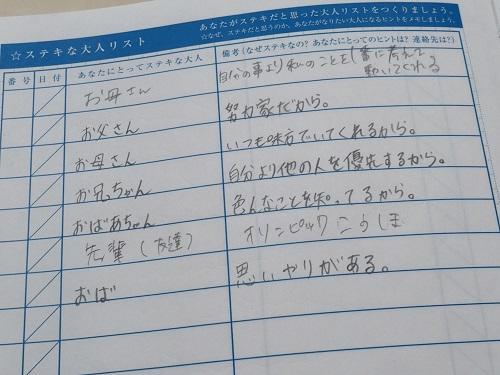 ☆ステキな大人リスト
あなたがステキだと思った大人リストをつくりましょう。
☆なぜ、ステキだと思うのか、あなたがなりたい大人になるヒントをメモしましょう。
番号 日付 あなたにとってステキな大人 備考(なぜステキなの?あなたにとってのヒントは?連絡先は?)
お母さん 自分の事より私のことを1番に考えて
動いてくれる
お父さん 努力家だから。
お母さん いつも味方でいてくれるから。
お兄ちゃん 自分より他の人を優先するから。
おばあちゃん 色んなことを知ってるから。
先輩(友達) オリンピックこうしま
おば 思いやりがある。